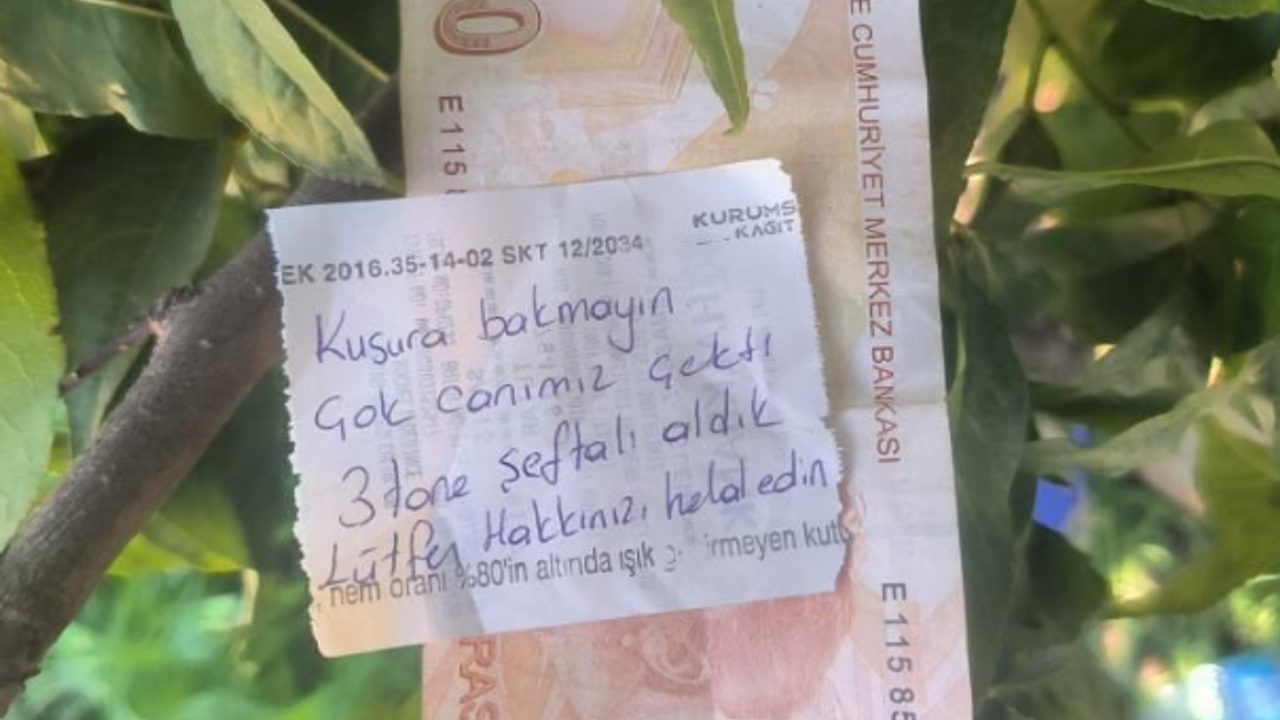 0
E 115 8
E CUMHURİYET MERKEZ BANKASI
KURUMS
KAĞIT
EK 2016.35-14-02 SKT 12/2034
Kusura bakmayın
Çok canımız çekti
3 tane şeftali aldık
Lütfen Hakkınızı helal edin
nem oranı %80'in altında ışık irmeyen kutu
RAS
E 115 85